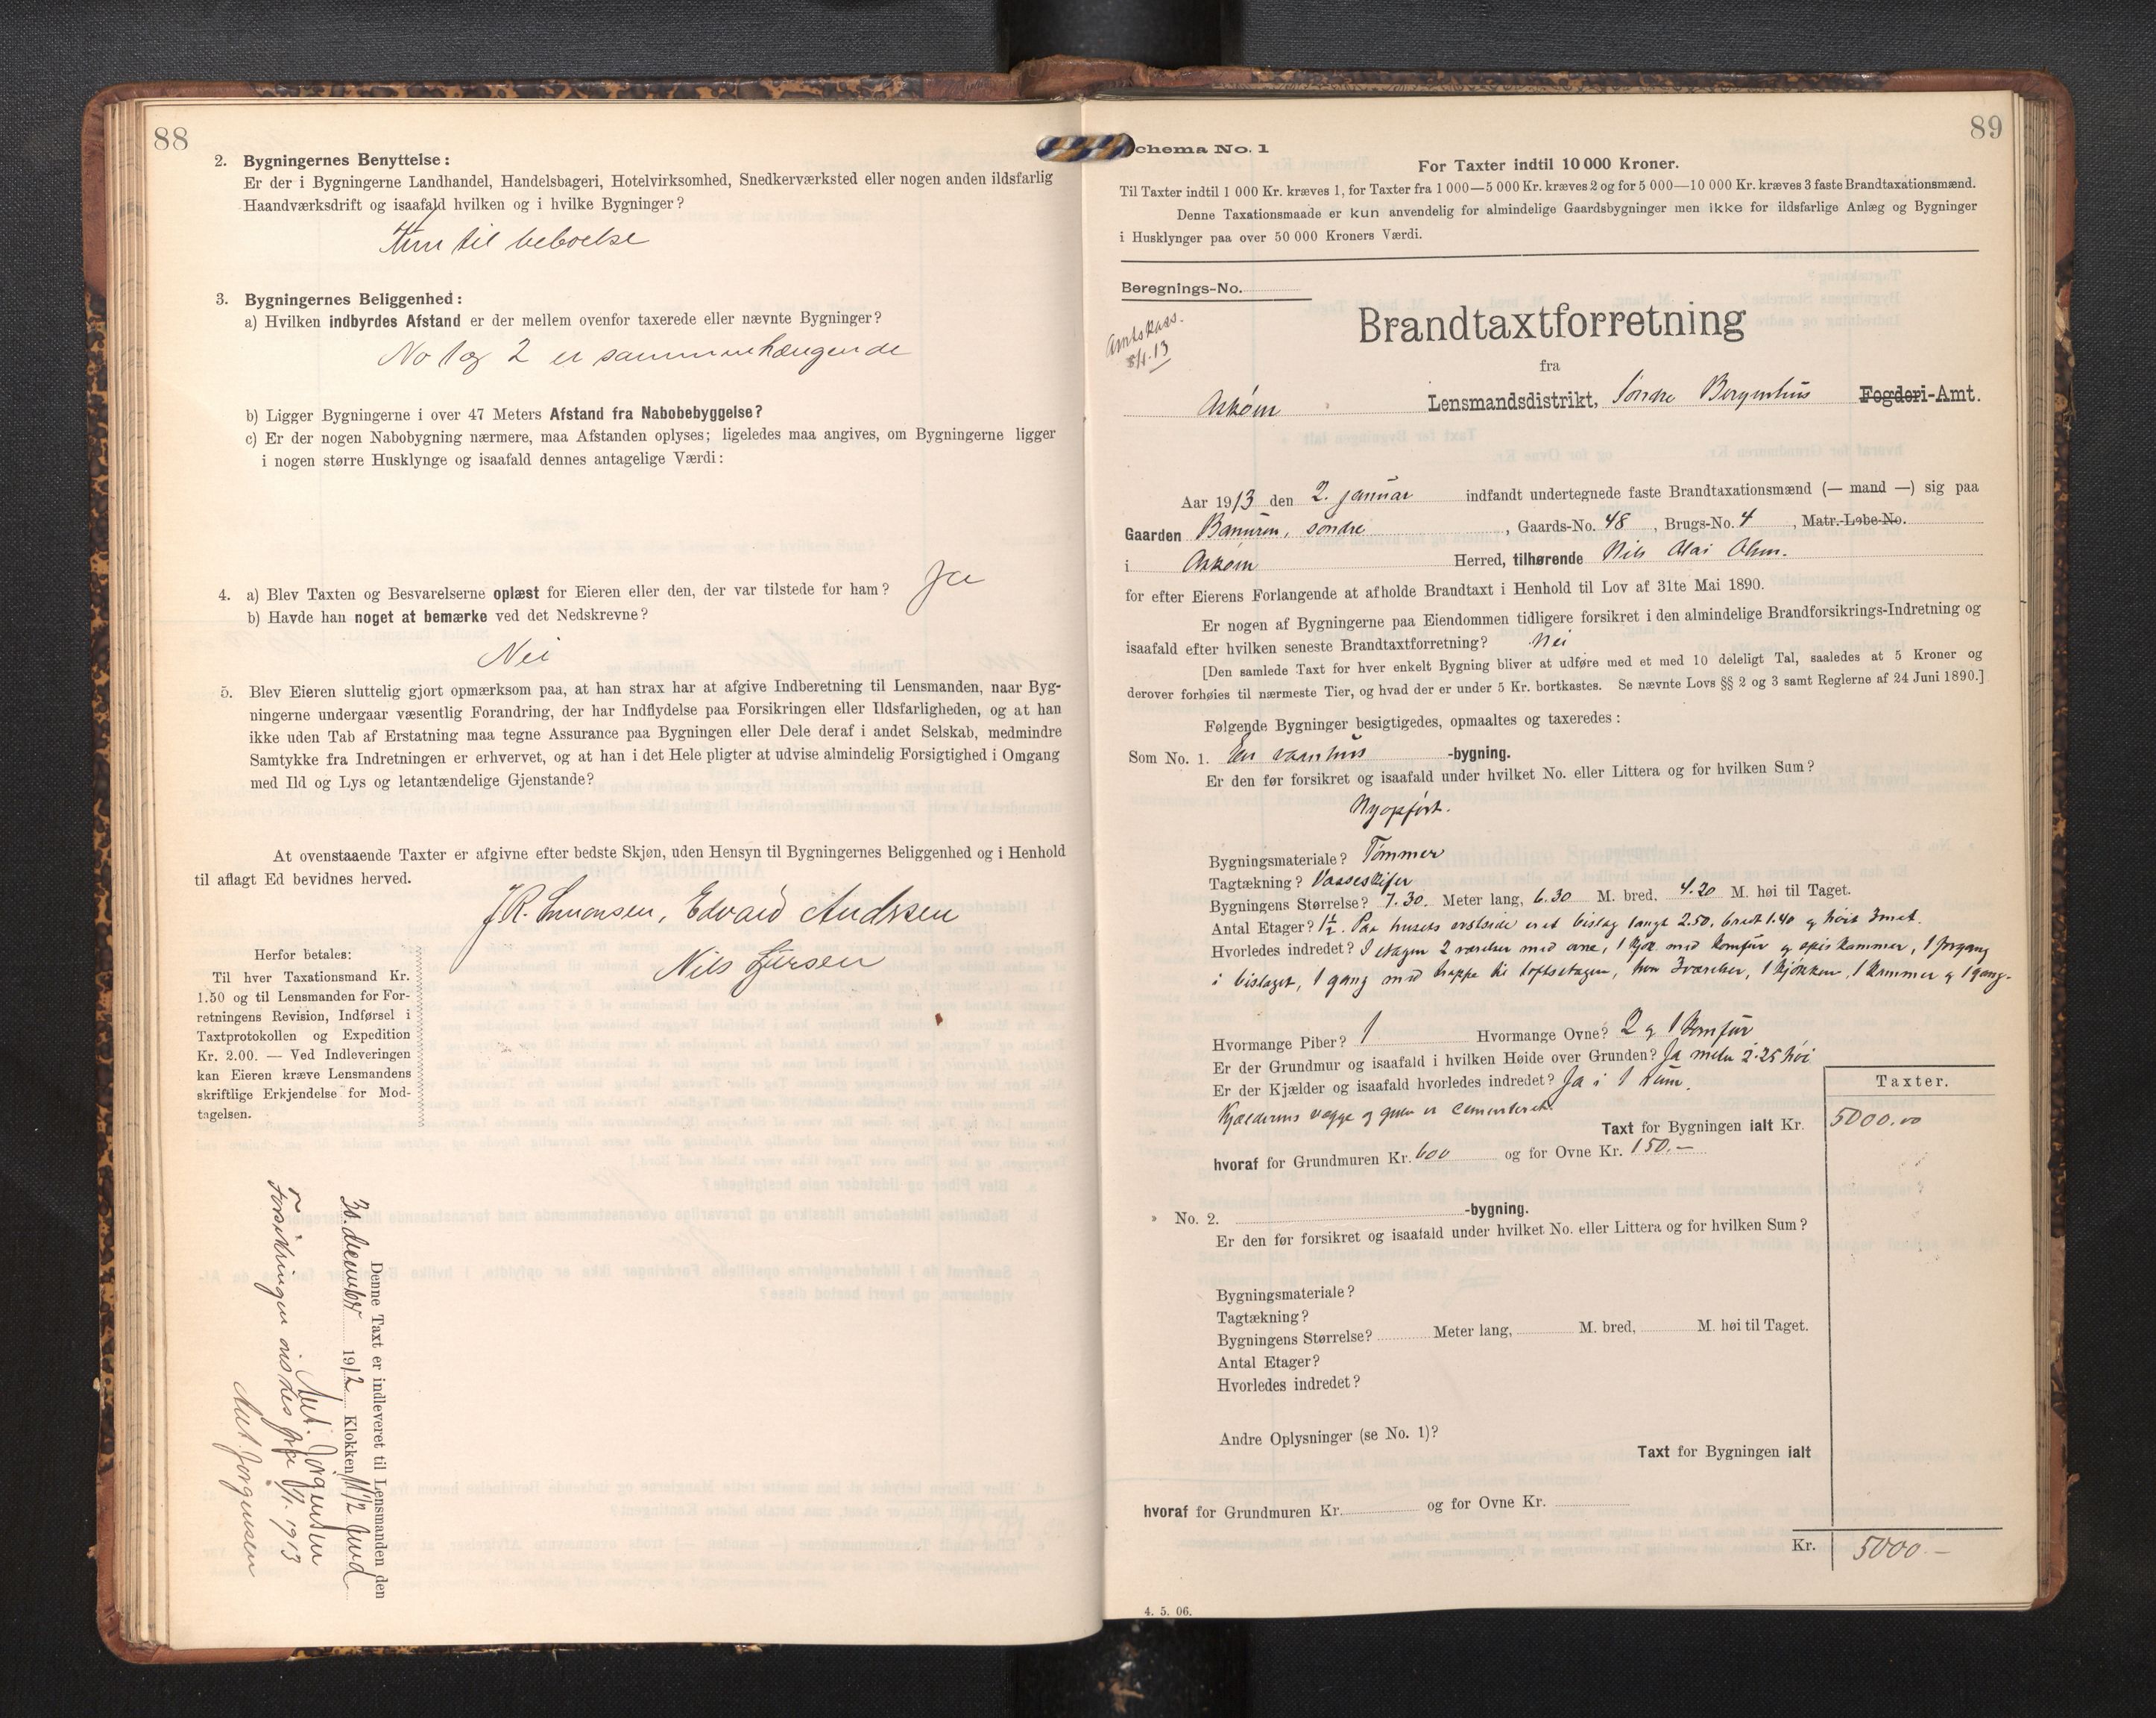 88
2. Bygningernes Benyttelse:
Er der i Bygningerne Landhandel, Handelsbageri, Hotelvirksomhed, Snedkerværksted eller nogen anden ildsfarlig
Haandværksdrift og isaafald hvilken og i hvilke Bygninger?
Kun til beboelse
3. Bygningernes Beliggenhed:
a) Hvilken indbyrdes Afstand er der mellem ovenfor taxerede eller nævnte Bygninger?
No 1 og 2 er sammenhængende
b) Ligger Bygningerne i over 47 Meters Afstand fra Nabobebyggelse?
c) Er der nogen Nabobygning nærmere, maa Afstanden oplyses; ligeledes maa angives, om Bygningerne ligger
i nogen større Husklynge og isaafald dennes antagelige Værdi:
4. a) Blev Taxten og Besvarelserne oplæst for Eieren eller den, der var tilstede for ham? Ja
b) Havde han noget at bemærke ved det Nedskrevne?
Nei
5. Blev Eieren sluttelig gjort opmærksom paa, at han strax har at afgive Indberetning til Lensmanden, naar Byg-
ningerne undergaar væsentlig Forandring, der har Indflydelse paa Forsikringen eller Ildsfarligheden, og at han
ikke uden Tab af Erstatning maa tegne Assurance paa Bygningen eller Dele deraf i andet Selskab, medmindre
Samtykke fra Indretningen er erhvervet, og at han i det Hele pligter at udvise almindelig Forsigtighed i Omgang
med Ild og Lys og letantændelige Gjenstande?
At ovenstaaende Taxter er afgivne efter bedste Skjøn, uden Hensyn til Bygningernes Beliggenhed og i Henhold
til aflagt Ed bevidnes herved.
J.R. Simonsen, Edvard Andssen
Nils
Herfor betales:
Til hver Taxationsmand Kr.
1.50 og til Lensmanden for For-
retningens Revision, Indførsel i
Taxtprotokollen og Expedition
Kr. 2.00. — Ved Indleveringen
kan Eieren kræve Lensmandens
skriftlige Erkjendelse for Mod-
tagelsen.
Denne Taxt er indleveret til Lensmanden den
30. december 1912 Klokken 11 1/2
Aut. Jørgensen
Forsikringen anvises fra 8/1. 1913
Aut. Jørgensen
89
chema No. 1
For Taxter indtil 10 000 Kroner.
Til Taxter indtil 1 000 Kr. kræves 1, for Taxter fra 1 000—5 000 Kr. kræves 2 og for 5 000—10 000 Kr. kræves 3 faste Brandtaxationsmænd.
Denne Taxationsmaade er kun anvendelig for almindelige Gaardsbygninger men ikke for ildsfarlige Anlæg og Bygninger
i Husklynger paa over 50 000 Kroners Værdi.
Beregnings-No.
Amtskass.
8/1.13
Brandtaxtforretning
fra
Askøen Lensmandsdistrikt, Søndre Bergenhus Fogderi-Amt.
Aar 1913 den 2. januar indfandt undertegnede faste Brandtaxationsmænd (— mand —) sig paa
Gaarden søndre, Gaards-No. 48, Brugs-No. 4, Matr.-Løbe-No.
i Askøen Herred, tilhørende Nils Olai Olsen.
for efter Eierens Forlangende at afholde Brandtaxt i Henhold til Lov af 31te Mai 1890.
Er nogen af Bygningerne paa Eiendommen tidligere forsikret i den almindelige Brandforsikrings-Indretning og
isaafald efter hvilken seneste Brandtaxtforretning? Nei
[Den samlede Taxt for hver enkelt Bygning bliver at udføre med et med 10 deleligt Tal, saaledes at 5 Kroner og
derover forhøies til nærmeste Tier, og hvad der er under 5 Kr. bortkastes. Se nævnte Lovs §§ 2 og 3 samt Reglerne af 24 Juni 1890.]
Følgende Bygninger besigtigedes, opmaaltes og taxeredes:
Som No. 1. En vaanhus -bygning.
Er den før forsikret og isaafald under hvilket No. eller Littera og for hvilken Sum?
Nyopført.
Bygningsmateriale? Tømmer
Tagtækning? Vasseskifer
Bygningens Størrelse? 7.30. Meter lang, 6.30 M. bred, 4.20 M. høi til Taget.
Antal Etager? 1 1/2. Paa husets er et bislag langt 2.50, bredt 1.40 og høit 3 met.
Hvorledes indredet? I etagen 2 værelser med ovne, 1 kjøk. med komfur og spiskammer, 1 forgang
i bislaget, 1 gang med trappe til loftsetagen, hvor 3 værelser, 1 kjøkken, 1 kammer og 1 gang.
Hvormange Piber? 1 Hvormange Ovne? 2 og 1 komfur
Er der Grundmur og isaafald i hvilken Høide over Grunden? Ja 2.25 høi
Er der Kjælder og isaafald hvorledes indredet? Ja i 1 rum.
Kjælderens vægge og gulv er cementeret.
Taxter.
Taxt for Bygningen ialt Kr. 5000.00
hvoraf for Grundmuren Kr. 600 og for Ovne Kr. 150.—
No. 2. -bygning.
Er den før forsikret og isaafald under hvilket No. eller Littera og for hvilken Sum?
Bygningsmateriale?
Tagtækning?
Bygningens Størrelse? Meter lang, M. bred, M. høi til Taget.
Antal Etager?
Hvorledes indredet?
Andre Oplysninger (se No. 1)?
Taxt for Bygningen ialt
hvoraf for Grundmuren Kr. og for Ovne Kr.
Kr. 5000.—
4. 5. 06.